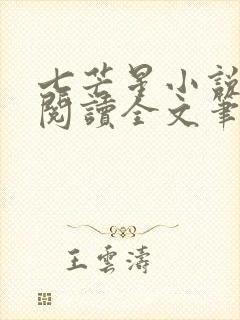 七芒星小說
閱讀全文筆
王雲濤